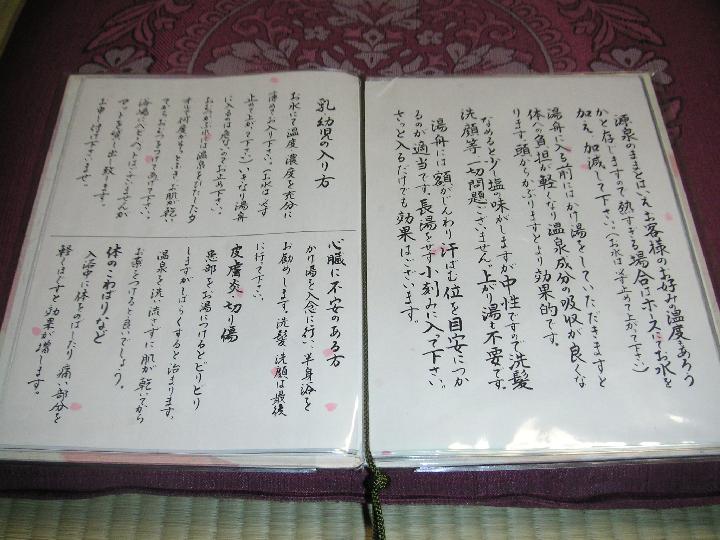 源泉のままとはいえお客様のお好み温度もあろう
かと存じますので熱すぎる場合はホースにてお水を
加え、加減して下さい。(お水は必ず止めて上がって下さい)
湯舟に入る前にはかけ湯をしていただきますと
体への負担が軽くなり温泉成分の吸収が良くな
ります。頭からかぶりますとより効果的です。
なめると少し塩の味がしますが中性ですので洗髪
洗顔等一切問題ございません。上がり湯も不要です。
湯舟には額がじんわり汗ばむ位を目安につか
るのが適当です。長湯をせず小刻みに入って下さい。
さっと入るだけでも効果はございます。
乳幼児の入り方
お水にて温度、濃度を充分に
薄めてお入り下さい。(お水は必ず
止めて上がって下さい)いきなり湯舟
に入るのは危ないのでお止め下さい。
お肌がかぶれ
てからおむつをつけてあげて下さい。
浴場にベビーバスはございませんが
マットを貸し出し致します。
お申し付け下さいませ。
心臓に不安のある方
かけ湯を入念に行い、半身浴を
お勧めします。洗髪、洗顔は最後
に行って下さい。
皮膚炎、切り傷
患部をお湯につけるとピリピリ
しますがしばらくすると治まります。
温泉を洗い流さずに肌が乾いてから
お薬をつけると良いでしょう。
体のこわばりなど
入浴中に体をのばしたり、痛い部分を
軽くほぐすと効果が増します。